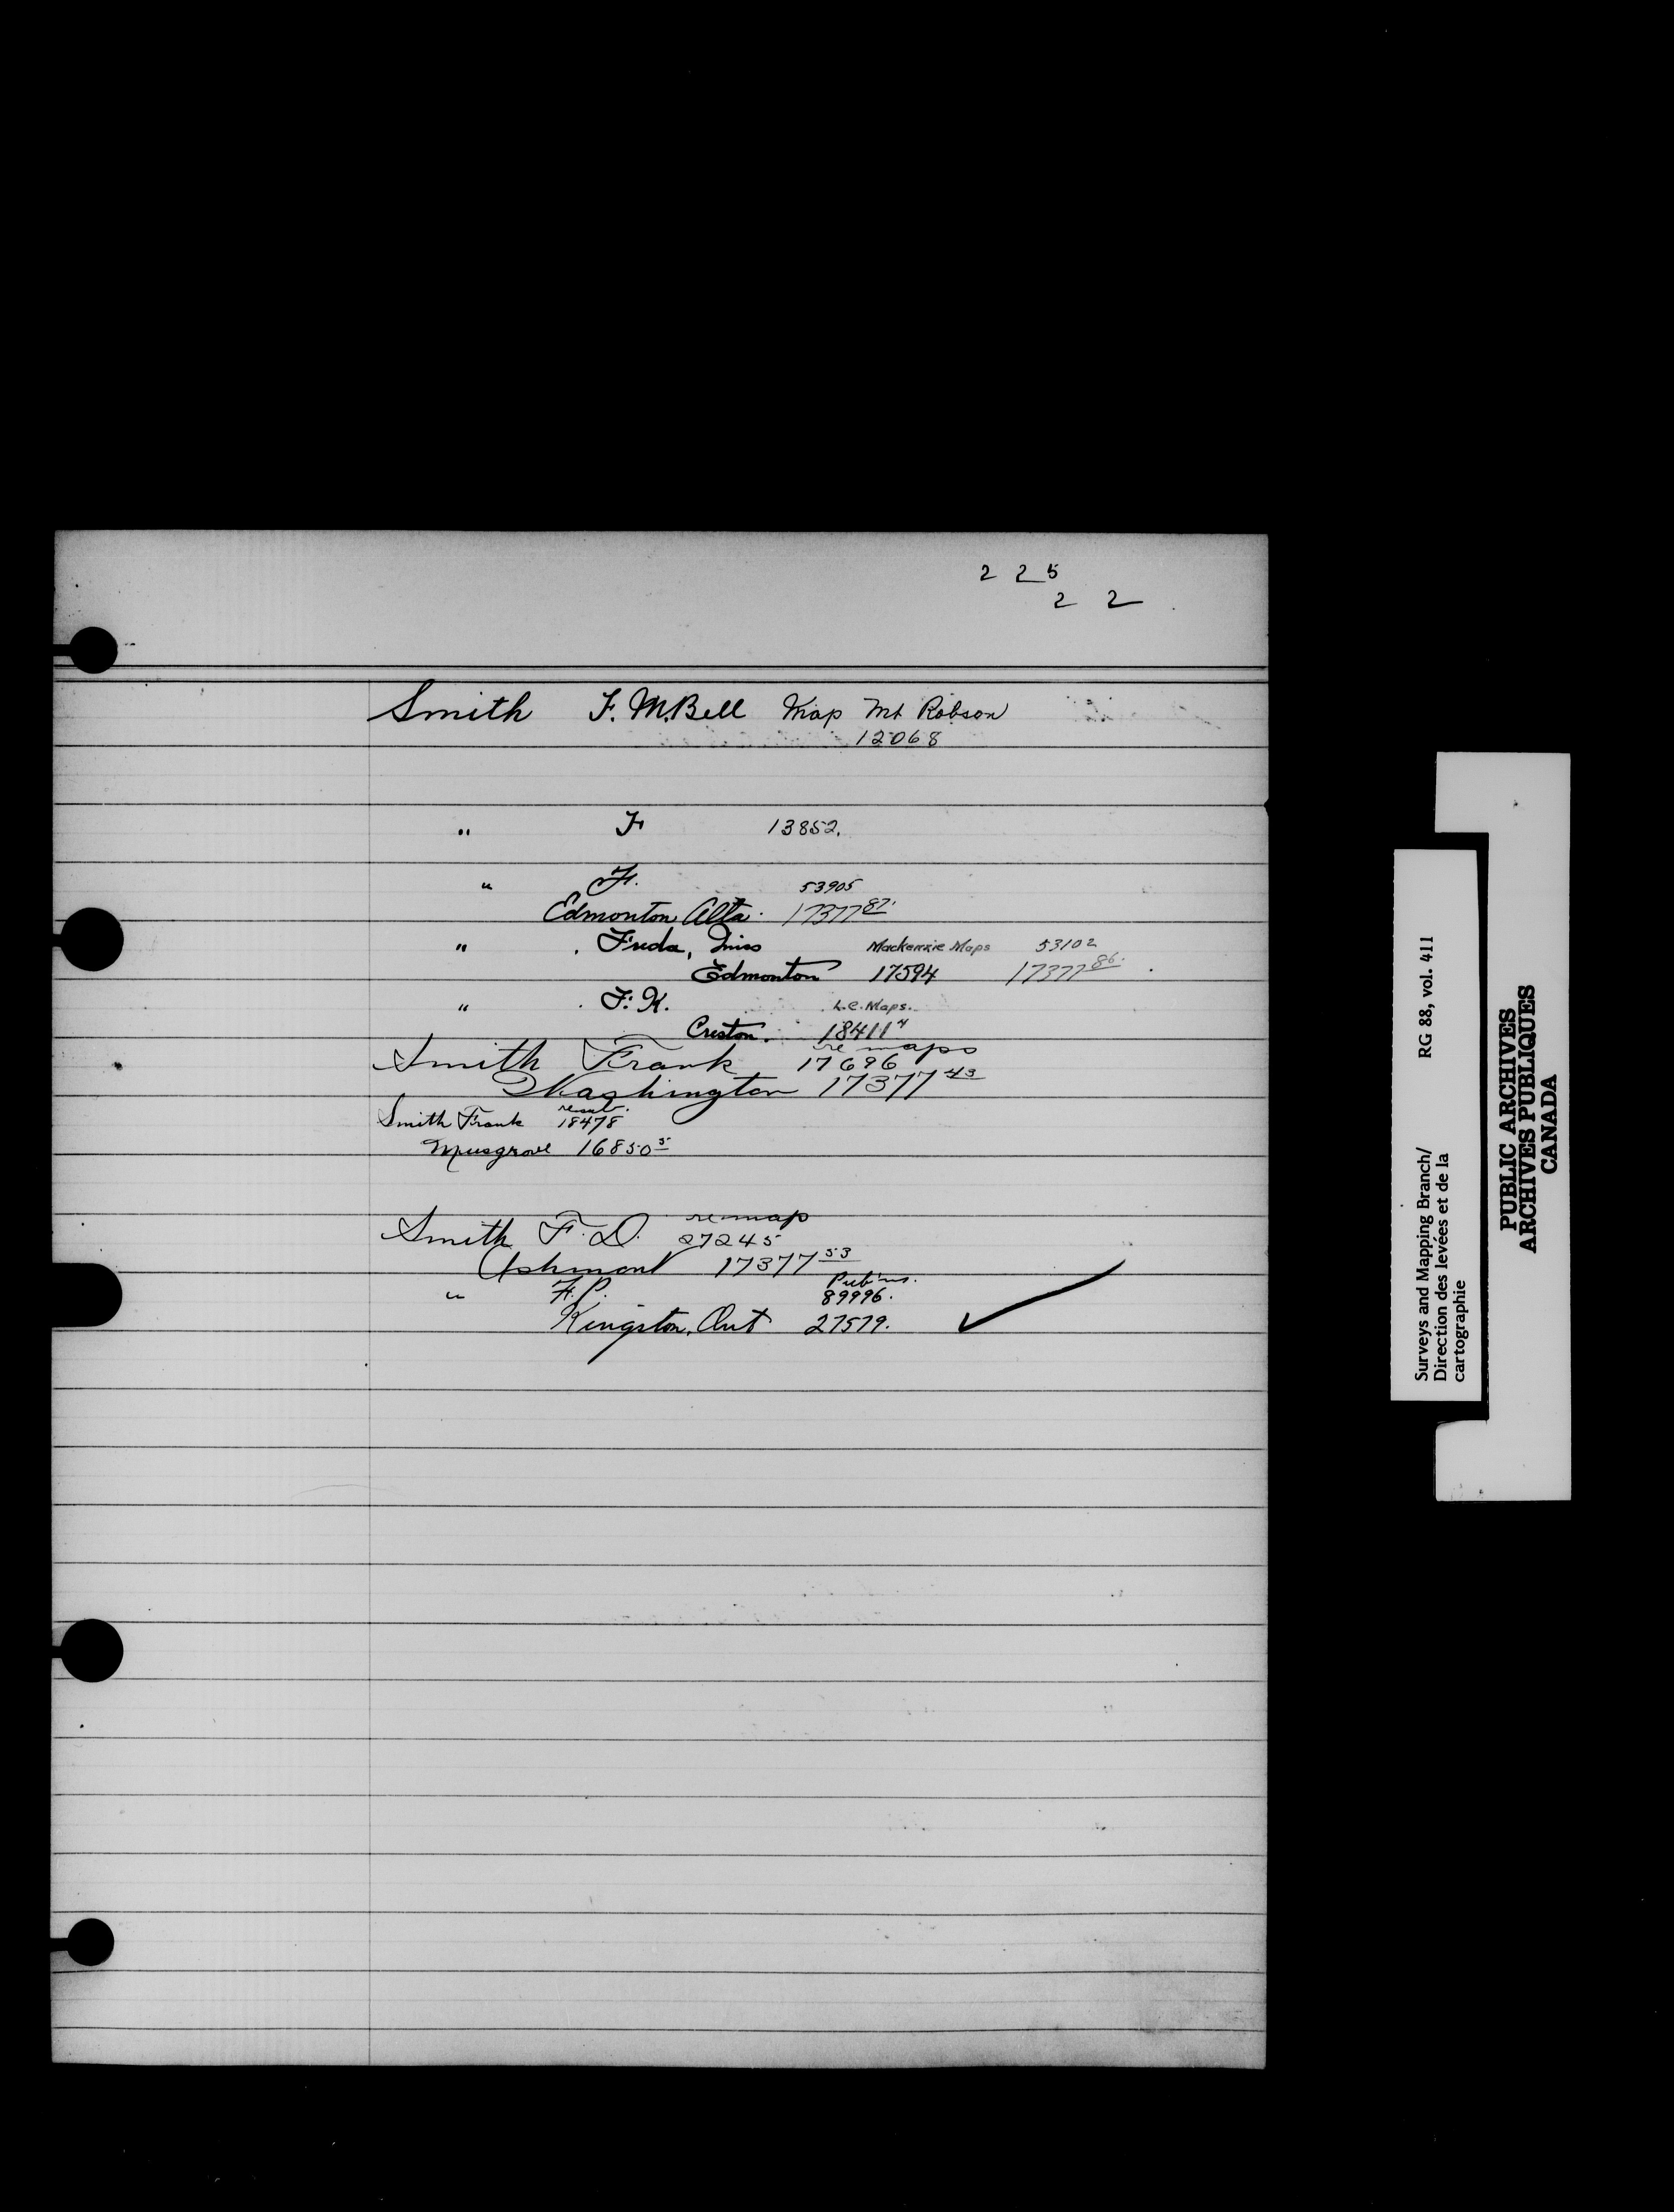 2 2 5
2 2
Smith F. M. Bell Map Mt Robson
12068
" F 13852.
" F. 53905
Edmonton Alta. 17377 87.
" Freda, Miss Mackenzie Maps 53102
Edmonton 17594 17377 86.
" F. K. L.C. Maps.
Creston. 18411 4
re maps
Smith Frank 17696
Washington 17377 43
Smith Frank 18478
Musgrove 16850 5
re map
Smith F. D. 27245
Ashmont 17377 53
Pub'ns.
" F.P. 89996.
Kingston, Ont 27579.
Surveys and Mapping Branch/ RG 88, vol. 411
Direction des levées et de la
cartographie
PUBLIC ARCHIVES
ARCHIVES PUBLIQUES
CANADA